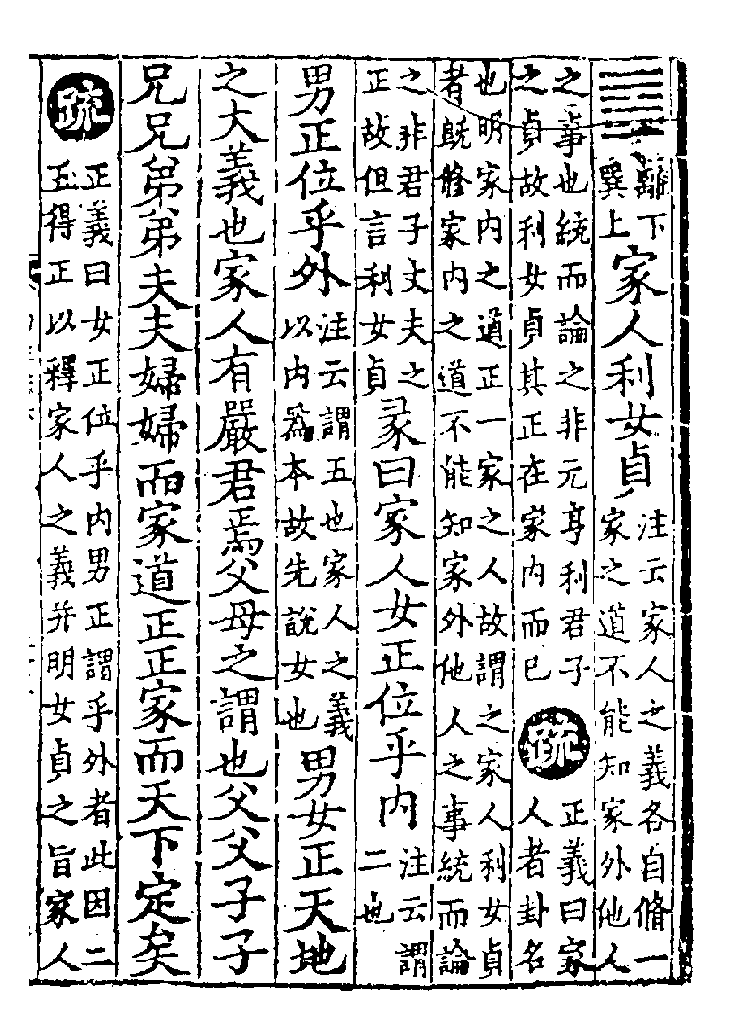 ䷤離下巽上家人利女貞注云家人之義各自脩一家之道不能知家外他人
之事也統而論之非元亨利君子之貞故利女貞其正在家内而已疏正義曰家人者卦名
也明家内之道正一家之人故謂之家人利女貞者既修家内之道不能知家外他人之事統而論
之非君子丈夫之正故但言利女貞彖曰家人女正位乎内注云謂二也
男正位乎外注云謂五也家人之義以内為本故先說女也男女正天地
之大義也家人有嚴君焉父母之謂也父父子子
兄兄弟弟夫夫婦婦而家道正正家而天下定矣
疏正義曰女正位乎内男正謂乎外者此因二五得正以釋家人之義并明女貞之旨家人